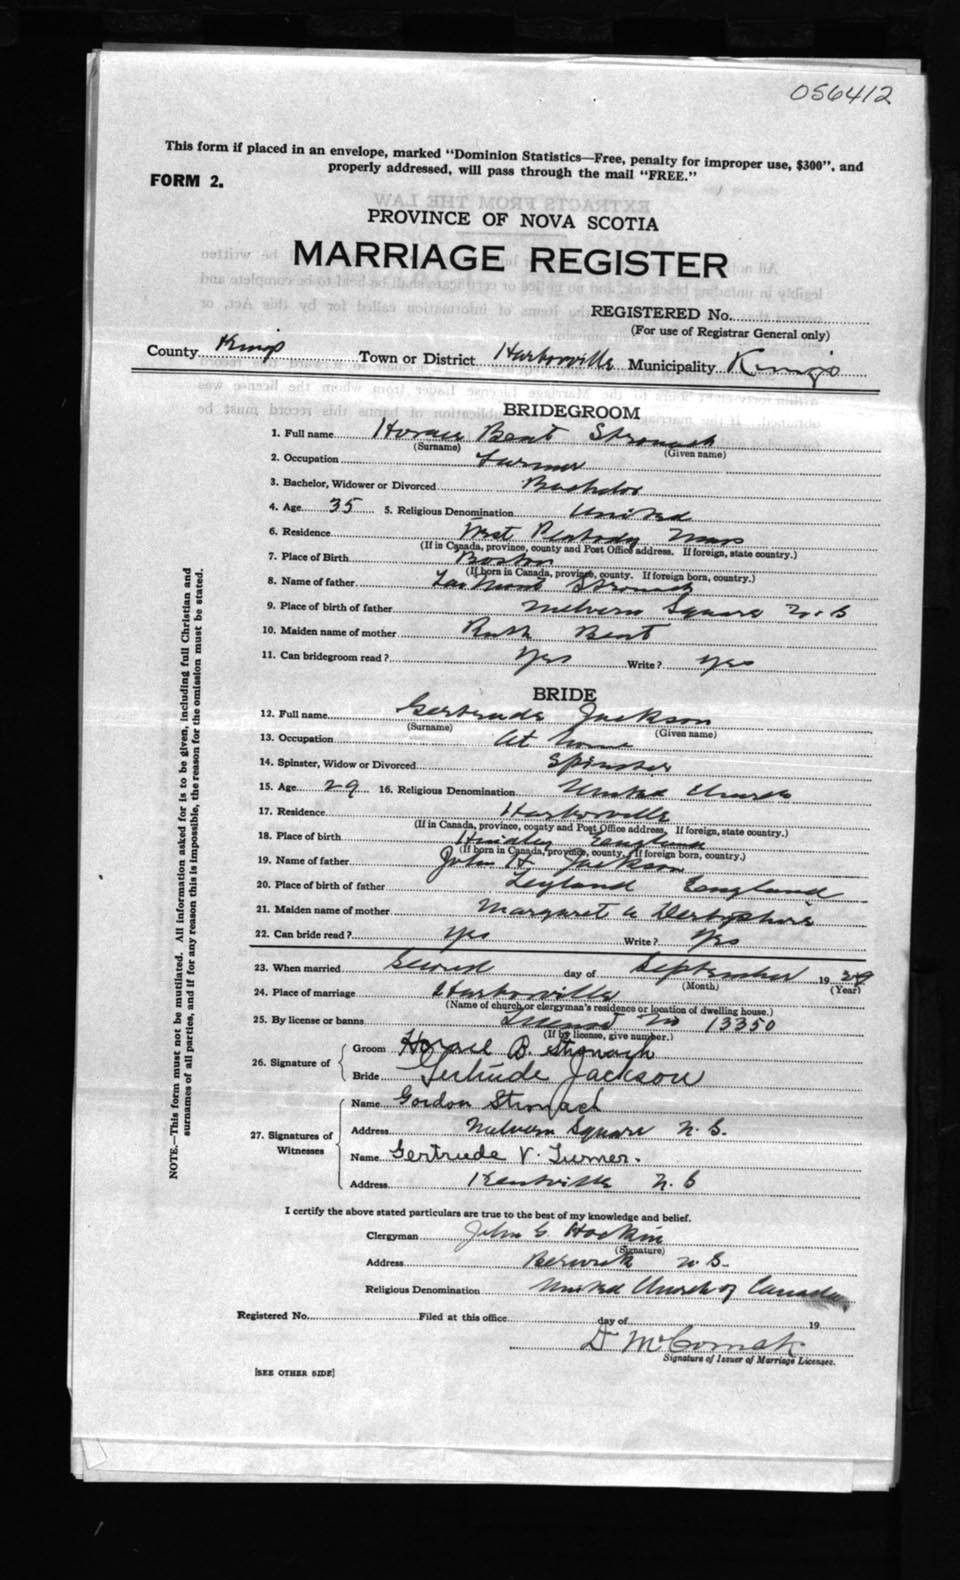 056412
This form if placed in an envelope, marked "Dominion Statistics—Free, penalty for improper use, $300", and
properly addressed, will pass through the mail "FREE."
FORM 2.
PROVINCE OF NOVA SCOTIA
MARRIAGE REGISTER
REGISTERED No.
(For use of Registrar General only)
County Kings Town or District Harborville Municipality Kings
BRIDEGROOM
1. Full name Horace Bent Stronach
(Surname) (Given name)
2. Occupation Farmer
3. Bachelor, Widower or Divorced Bachelor
4. Age 35 5. Religious Denomination United
6. Residence West Peabody Mass
(If in Canada, province, county and Post Office address. If foreign, state country.)
7. Place of Birth Boston
(If born in Canada, province, county. If foreign born, country.)
8. Name of father Stronach
9. Place of birth of father Melvern Square N.S
10. Maiden name of mother Ruth Bent
11. Can bridegroom read? Yes Write? Yes
BRIDE
12. Full name Gertrude Jackson
(Surname) (Given name)
13. Occupation At home
14. Spinster, Widow or Divorced Spinster
15. Age 29 16. Religious Denomination United Church
17. Residence Harborville
(If in Canada, province, county and Post Office address, If foreign, state country.)
18. Place of birth Hindley England
(If born in Canada, province, county, If foreign born, country.)
19. Name of father John H Jackson
20. Place of birth of father Leyland England
21. Maiden name of mother Margaret A Derbyshire
22. Can bride read? Yes Write? Yes
23. When married Second day of September 1939
(Month) (Year)
24. Place of marriage Harborville
(Name of church or clergyman's residence or location of dwelling house.)
25. By license or banns License No 13350
(If by license, give number.)
26. Signature of
Groom Horace B. Stronach
Bride Gertrude Jackson
27. Signatures of Witnesses
Name Gordon Stronach
Address Melvern Square N.S.
Name Gertrude V. Turner.
Address Kentville N.S
I certify the above stated particulars are true to the best of my knowledge and belief.
Clergyman John G. Hockin
(Signature)
Address Berwick N.S.
Religious Denomination United Church of Canada
Registered No. Filed at this office day of 19
D McCormack
Signature of Issuer of Marriage Licenses.
[SEE OTHER SIDE]
NOTE.—This form must not be mutilated. All information asked for is to be given, including full Christian and
surnames of all parties, and if for any reason this is impossible, the reason for the omission must be stated.